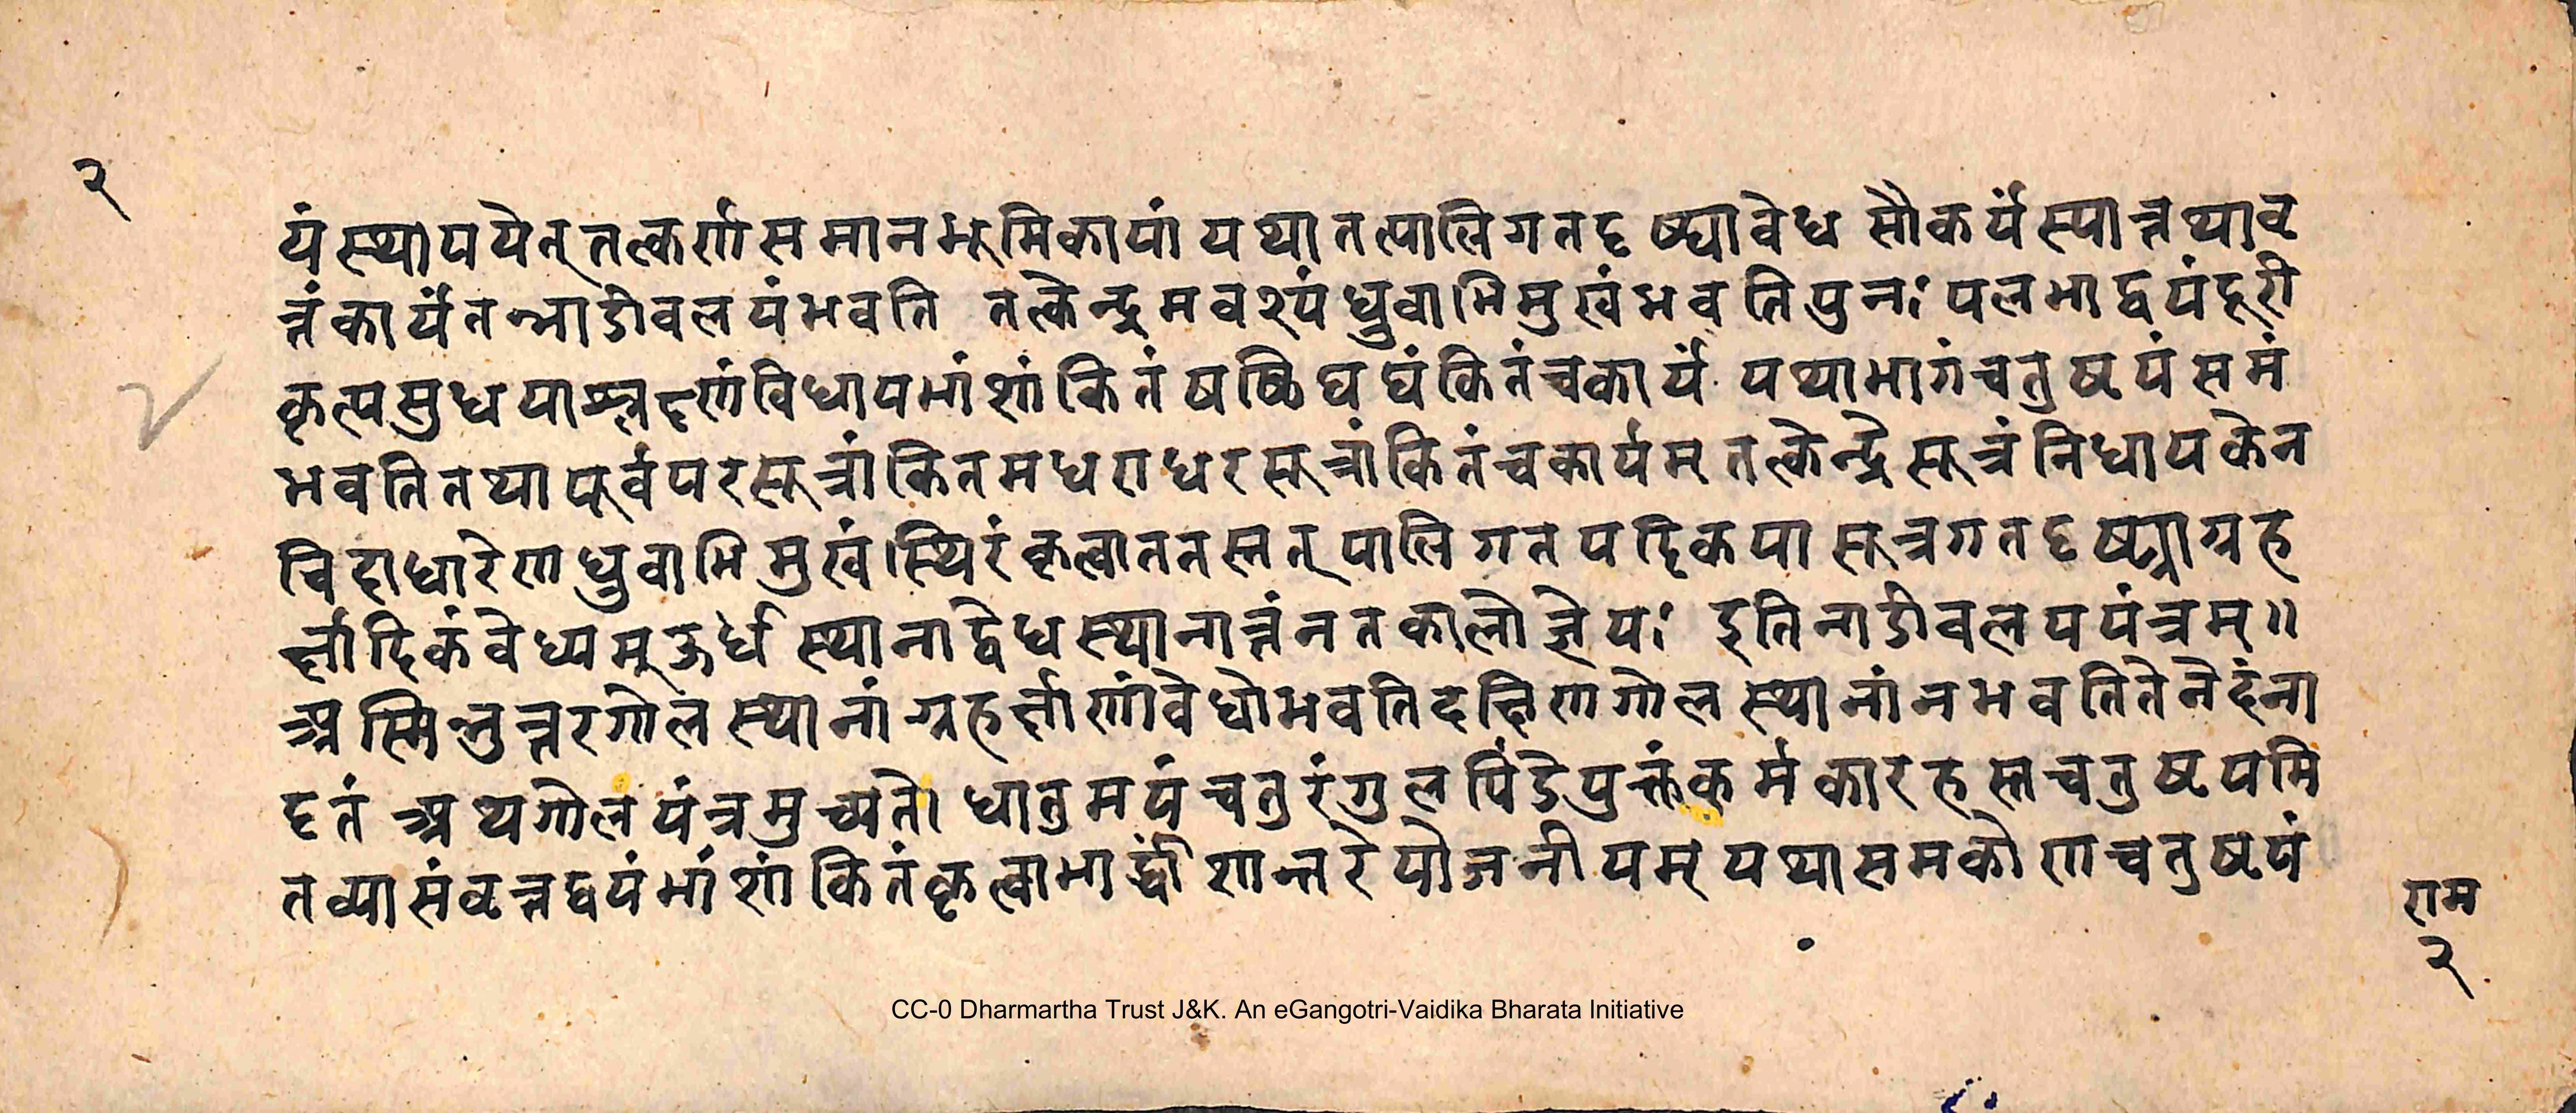 २
यं स्थापयेत् तत्कर्णसमानभूमिकायां यथा तत्पालिगतदृष्ट्यावेध सौकर्यं स्यात्तथाव
त्तं कार्यं तन्नाडीवलयंभवति तत्केन्द्रमवश्यं ध्रुवाभिमुखंभवतिपुनः पलभाद्वयंदूरी
कृत्यसुधयाश्लक्ष्णंविधायभांशांकितं षष्ठिघघंकितंचकार्यं यथाभागंचतुष्टयं समं
भवतितथापूर्वपरसूत्रांकितमधराधरसूत्रांकितंचकार्यम् तत्केन्द्रेसूत्रं निधायकेन
चिहाधारेणध्रुवाभिमुखं।स्थिरंकृत्वाततस्तत्पालिगतपट्टिकया सूत्रगतदृष्ट्याग्रह
र्क्षादिकंवेध्यम् ऊर्ध स्थानाद्वेधस्थानान्तंनतकालोज्ञेयः इतिनाडीवलययंत्रम्॥
अस्मिन्नुत्तरगोलस्थानांग्रहर्क्षाणांवेधोभवतिदक्षिणगोलस्थानांनभवतितेनेदंना
दृतं अथगोलयंत्रमुच्यते। धातुमयंचतुरंगुलपिंडेयुक्तंकर्मकारहस्तचतुष्टयमि
तव्यासंवृत्तद्वयंभांशांकितंकृत्वाभार्द्धांशान्तरेयोजनीयम् यथासमकोणचतुष्टयं
राम
२
CC-0 Dharmartha Trust J&K. An eGangotri-Vaidika Bharata Initiative